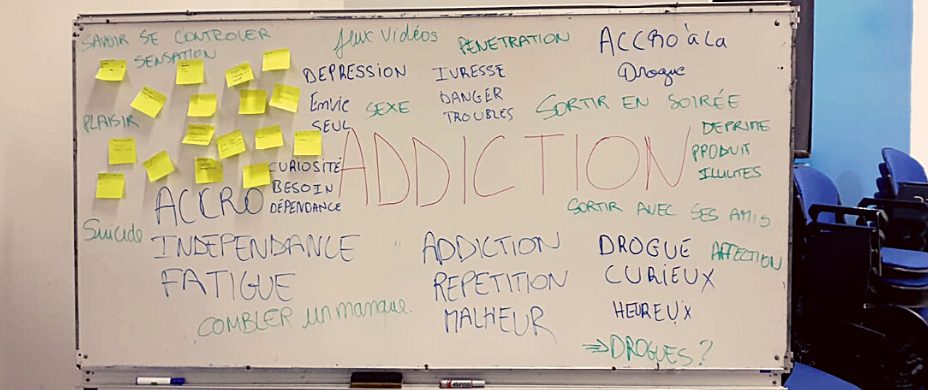 SAVOIR SE CONTROLER
SENSATION
Jeux vidéos
PENETRATION
ACCRO à la
Drogue
DEPRESSION
IVRESSE
Envie
SEXE
DANGER
SORTIR EN SOIRÉE
SEUL
TROUBLES
PLAISIR
ADDICTION
DEPRIME
PPODUIT
ILLICITES
CURIOSITÉ
BESOIN
DÉPENDANCE
ACCRO
SORTIR AVEC SES AMIS
Suicide
INDEPENDANCE
ADDICTION
DROGUE
AFFECTION
FATIGUE
REPETITION
CURIEUX
COMBLER un manque.
MALHEUR
HEUREUX
⇒DROGUES?